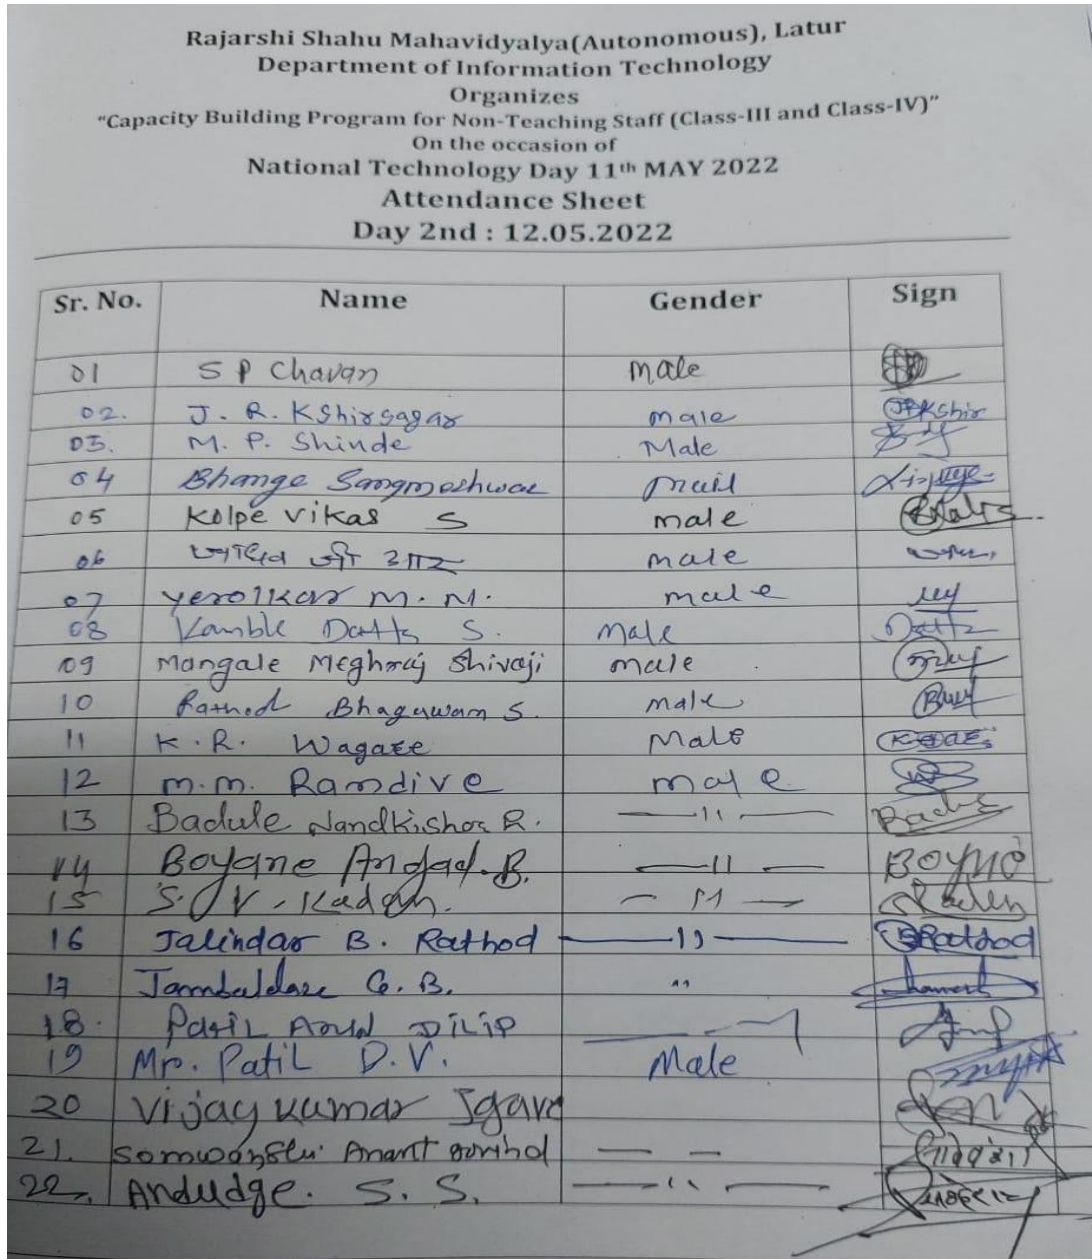 Rajarshi Shahu Mahavidyalya(Autonomous), Latur
Department of Information Technology
Organizes
"Capacity Building Program for Non-Teaching Staff (Class-III and Class-IV)"
On the occasion of
National Technology Day 11th MAY 2022
Attendance Sheet
Day 2nd : 12.05.2022
Sr. No. Name Gender Sign
01 S P Chavan male
02. J. R. Kshirsagar male JRKshir
03. M. P. Shinde Male
04 Bhange Sangmeshwar mail
05 Kolpe vikas S male
06 male
07 yerolkar M. M. male
08 Kamble Datta S. Male Datta
09 Mangale Meghraj Shivaji male
10 Rathod Bhagawan S. male
11 K. R. Wagare Male
12 m.m. Randive male
13 Badule Nandkishor R. —11—
14 Boyane Angad. B. —11—
15 S. V. Kadam. —11—
16 Jalindar B. Rathod —11— Rathod
17 G. B. "
18. Patil Dilip
19 Mr. Patil D. V. Male
20 Vijay kumar
21. Anant govind — —
22. Andudge. S. S. —11—